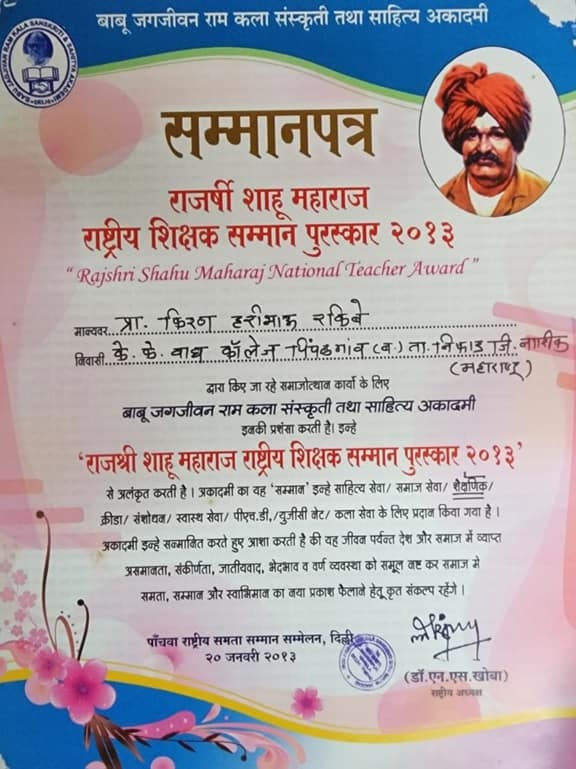 बाबू जगजीवन राम कला संस्कृती तथा साहित्य अकादमी
सम्मानपत्र
राजर्षी शाहू महाराज
राष्ट्रीय शिक्षक सम्मान पुरस्कार २०१३
“ Rajshri Shahu Maharaj National Teacher Award ”
मान्यवर प्रा. किरण हरीभाऊ रकिबे
निवासी के. के. वाघ कॉलेज पिंपळगांव (ब.) ता. निफाड जि. नाशिक
(महाराष्ट्र)
द्वारा किए जा रहे समाजोत्थान कार्यो के लिए
बाबू जगजीवन राम कला संस्कृती तथा साहित्य अकादमी
इनकी प्रशंसा करती है। इन्हे
‘राजश्री शाहू महाराज राष्ट्रीय शिक्षक सम्मान पुरस्कार २०१३’
से अलंकृत करती है । अकादमी का यह ‘सम्मान’ इन्हे साहित्य सेवा/ समाज सेवा/ शैक्षणिक/
क्रीडा/ संशोधन/ स्वास्थ सेवा/ पीएच.डी,/युजीसी नेट/ कला सेवा के लिए प्रदान किया गया है ।
अकादमी इन्हे सन्मानित करते हुए आशा करती है की वह जीवन पर्यन्त देश और समाज में व्याप्त
असमानता, संकीर्णता, जातीयवाद, भेदभाव व वर्ण व्यवस्था को समूल नष्ट कर समाज मे
समता, सम्मान और स्वाभिमान का नया प्रकाश फैलाने हेतू कृत संकल्प रहेंगे ।
पाँचवा राष्ट्रीय समता सम्मान सम्मेलन, दिल्ली
२० जनवरी २०१३
(डॉ.एन.एस.खोबा)
राष्ट्रीय अध्यक्ष